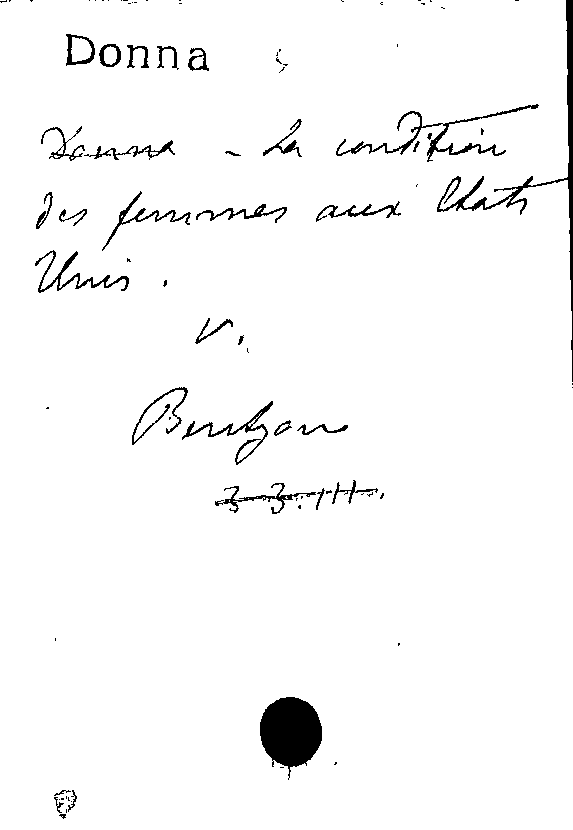 Donna
Donna - La condition
des femmes aux Etats
Unis.
V.
Bentzon
3 3. III.